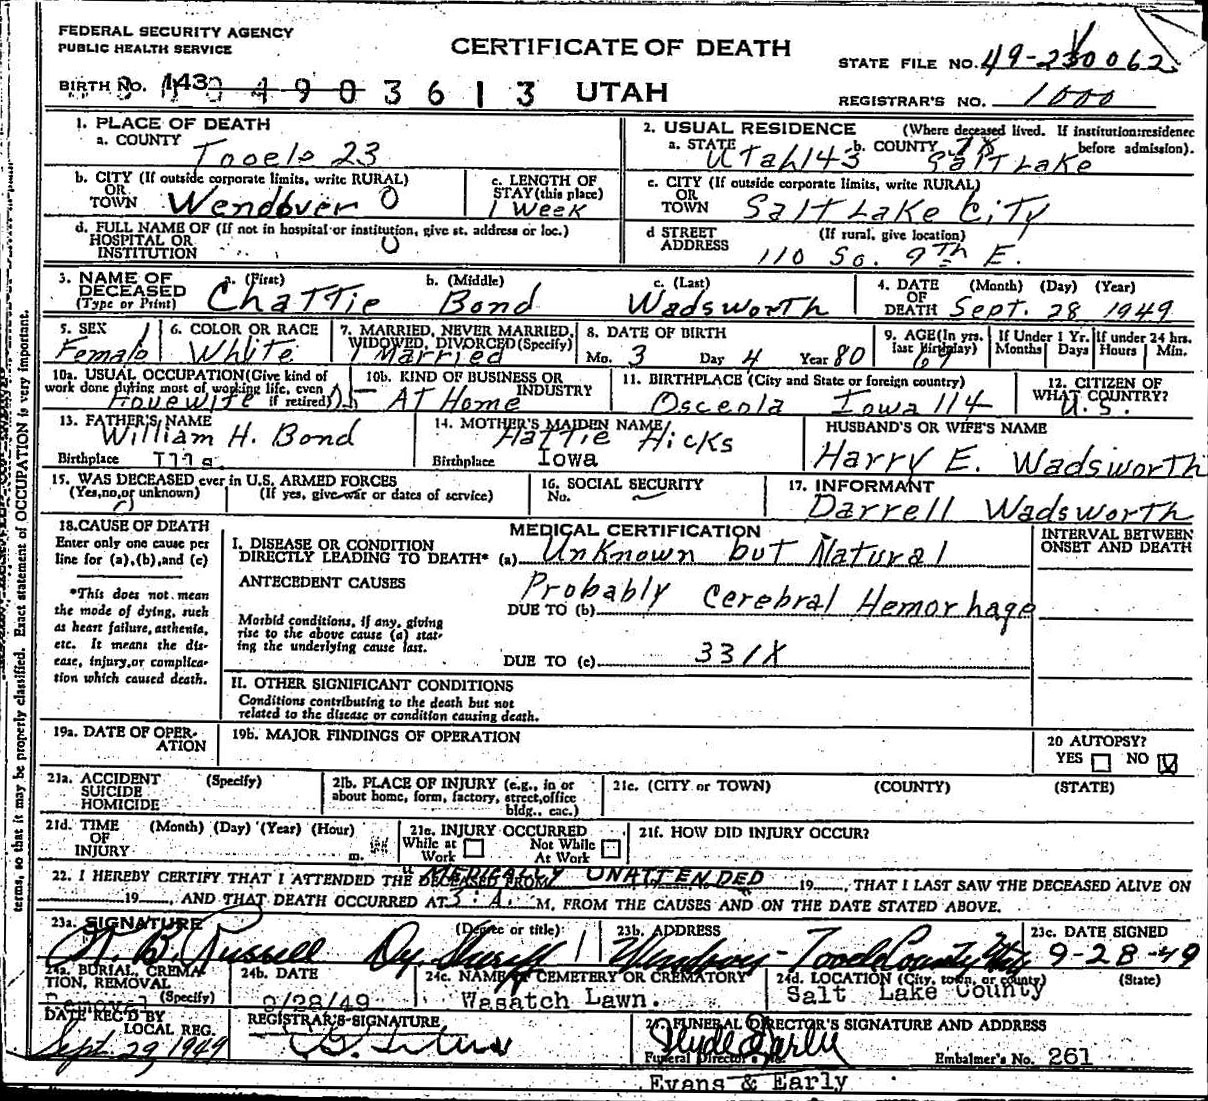 FEDERAL SECURITY AGENCY
PUBLIC HEALTH SERVICE
CERTIFICATE OF DEATH
STATE FILE NO. 49-230062
BIRTH NO. 143 0 4 9 0 3 6 1 3 UTAH
REGISTRAR'S NO. 1000
1. PLACE OF DEATH
a. COUNTY Tooele 23
2. USUAL RESIDENCE (Where deceased lived. If institution:residence before admission).
a. STATE Utah 143 b. COUNTY Salt Lake
b. CITY (If outside corporate limits, write RURAL)
OR
TOWN Wendover 0
c. LENGTH OF
STAY (this place)
1 Week
c. CITY (If outside corporate limits, write RURAL)
OR
TOWN Salt Lake City
d. FULL NAME OF (If not in hospital or institution, give st. address or loc.)
HOSPITAL OR
INSTITUTION 0
d STREET (If rural, give location)
ADDRESS 110 So. 9th E.
3. NAME OF
DECEASED
(Type or Print)
a. (First) b. (Middle) c. (Last)
Chattie Bond Wadsworth
4. DATE (Month) (Day) (Year)
OF
DEATH Sept. 28 1949
5. SEX
Female 1
6. COLOR OR RACE
White
7. MARRIED, NEVER MARRIED,
WIDOWED, DIVORCED (Specify)
1 Married
8. DATE OF BIRTH
Mo. 3 Day 4 Year 80
9. AGE (In yrs.
last birthday) 69
If Under 1 Yr.
Months Days
If under 24 hrs.
Hours Min.
10a. USUAL OCCUPATION (Give kind of
work done during most of working life, even
if retired)
Housewife
10b. KIND OF BUSINESS OR
INDUSTRY
At Home
11. BIRTHPLACE (City and State or foreign country)
Osceola Iowa 114
12. CITIZEN OF
WHAT COUNTRY?
U.S.
13. FATHER'S NAME
William H. Bond
Birthplace Ills.
14. MOTHER'S MAIDEN NAME
Hattie Hicks
Birthplace Iowa
HUSBAND'S OR WIFE'S NAME
Harry E. Wadsworth
15. WAS DECEASED ever in U.S. ARMED FORCES
(Yes,no,or unknown) (If yes, give war or dates of service)
16. SOCIAL SECURITY
No.
17. INFORMANT
Darrell Wadsworth
18. CAUSE OF DEATH
Enter only one cause per
line for (a),(b),and (c)
*This does not mean
the mode of dying, such
as heart failure, asthenia,
etc. It means the dis-
ease, injury,or complica-
tion which caused death.
MEDICAL CERTIFICATION
INTERVAL BETWEEN
ONSET AND DEATH
I. DISEASE OR CONDITION
DIRECTLY LEADING TO DEATH* (a) Unknown but Natural
ANTECEDENT CAUSES
Probably Cerebral Hemorhage
DUE TO (b)
Morbid conditions, if any, giving
rise to the above cause (a) stat-
ing the underlying cause last.
DUE TO (c) 331X
II. OTHER SIGNIFICANT CONDITIONS
Conditions contributing to the death but not
related to the disease or condition causing death.
19a. DATE OF OPER-
ATION
19b. MAJOR FINDINGS OF OPERATION
20 AUTOPSY?
YES NO
21a. ACCIDENT (Specify)
SUICIDE
HOMICIDE
21b. PLACE OF INJURY (e.g., in or
about home, form, factory, street,office
bldg., eac.)
21c. (CITY or TOWN) (COUNTY) (STATE)
21d. TIME (Month) (Day) (Year) (Hour)
OF
INJURY m.
21e. INJURY OCCURRED
While at Work Not While At Work
21f. HOW DID INJURY OCCUR?
22. I HEREBY CERTIFY THAT I ATTENDED THE DECEASED FROM MEDICALLY UNATTENDED 19 , THAT I LAST SAW THE DECEASED ALIVE ON
19 , AND THAT DEATH OCCURRED AT 5. A. M, FROM THE CAUSES AND ON THE DATE STATED ABOVE.
23a. SIGNATURE (Degree or title)
B. Russell Dy Sheriff
23b. ADDRESS
Wendover - Tooele County Utah
23c. DATE SIGNED
9-28-49
24a. BURIAL, CREMA-
TION, REMOVAL
(Specify)
Removal
24b. DATE
9/28/49
24c. NAME OF CEMETERY OR CREMATORY
Wasatch Lawn.
24d. LOCATION (City, town, or county) (State)
Salt Lake County
DATE REC'D BY
LOCAL REG.
Sept 29 1949
REGISTRAR'S SIGNATURE
25. FUNERAL DIRECTOR'S SIGNATURE AND ADDRESS
Clyde Early
Funeral Director's No. Embalmer's No. 261
Evans & Early
terms, so that it may be properly classified. Exact statement of OCCUPATION is very important.